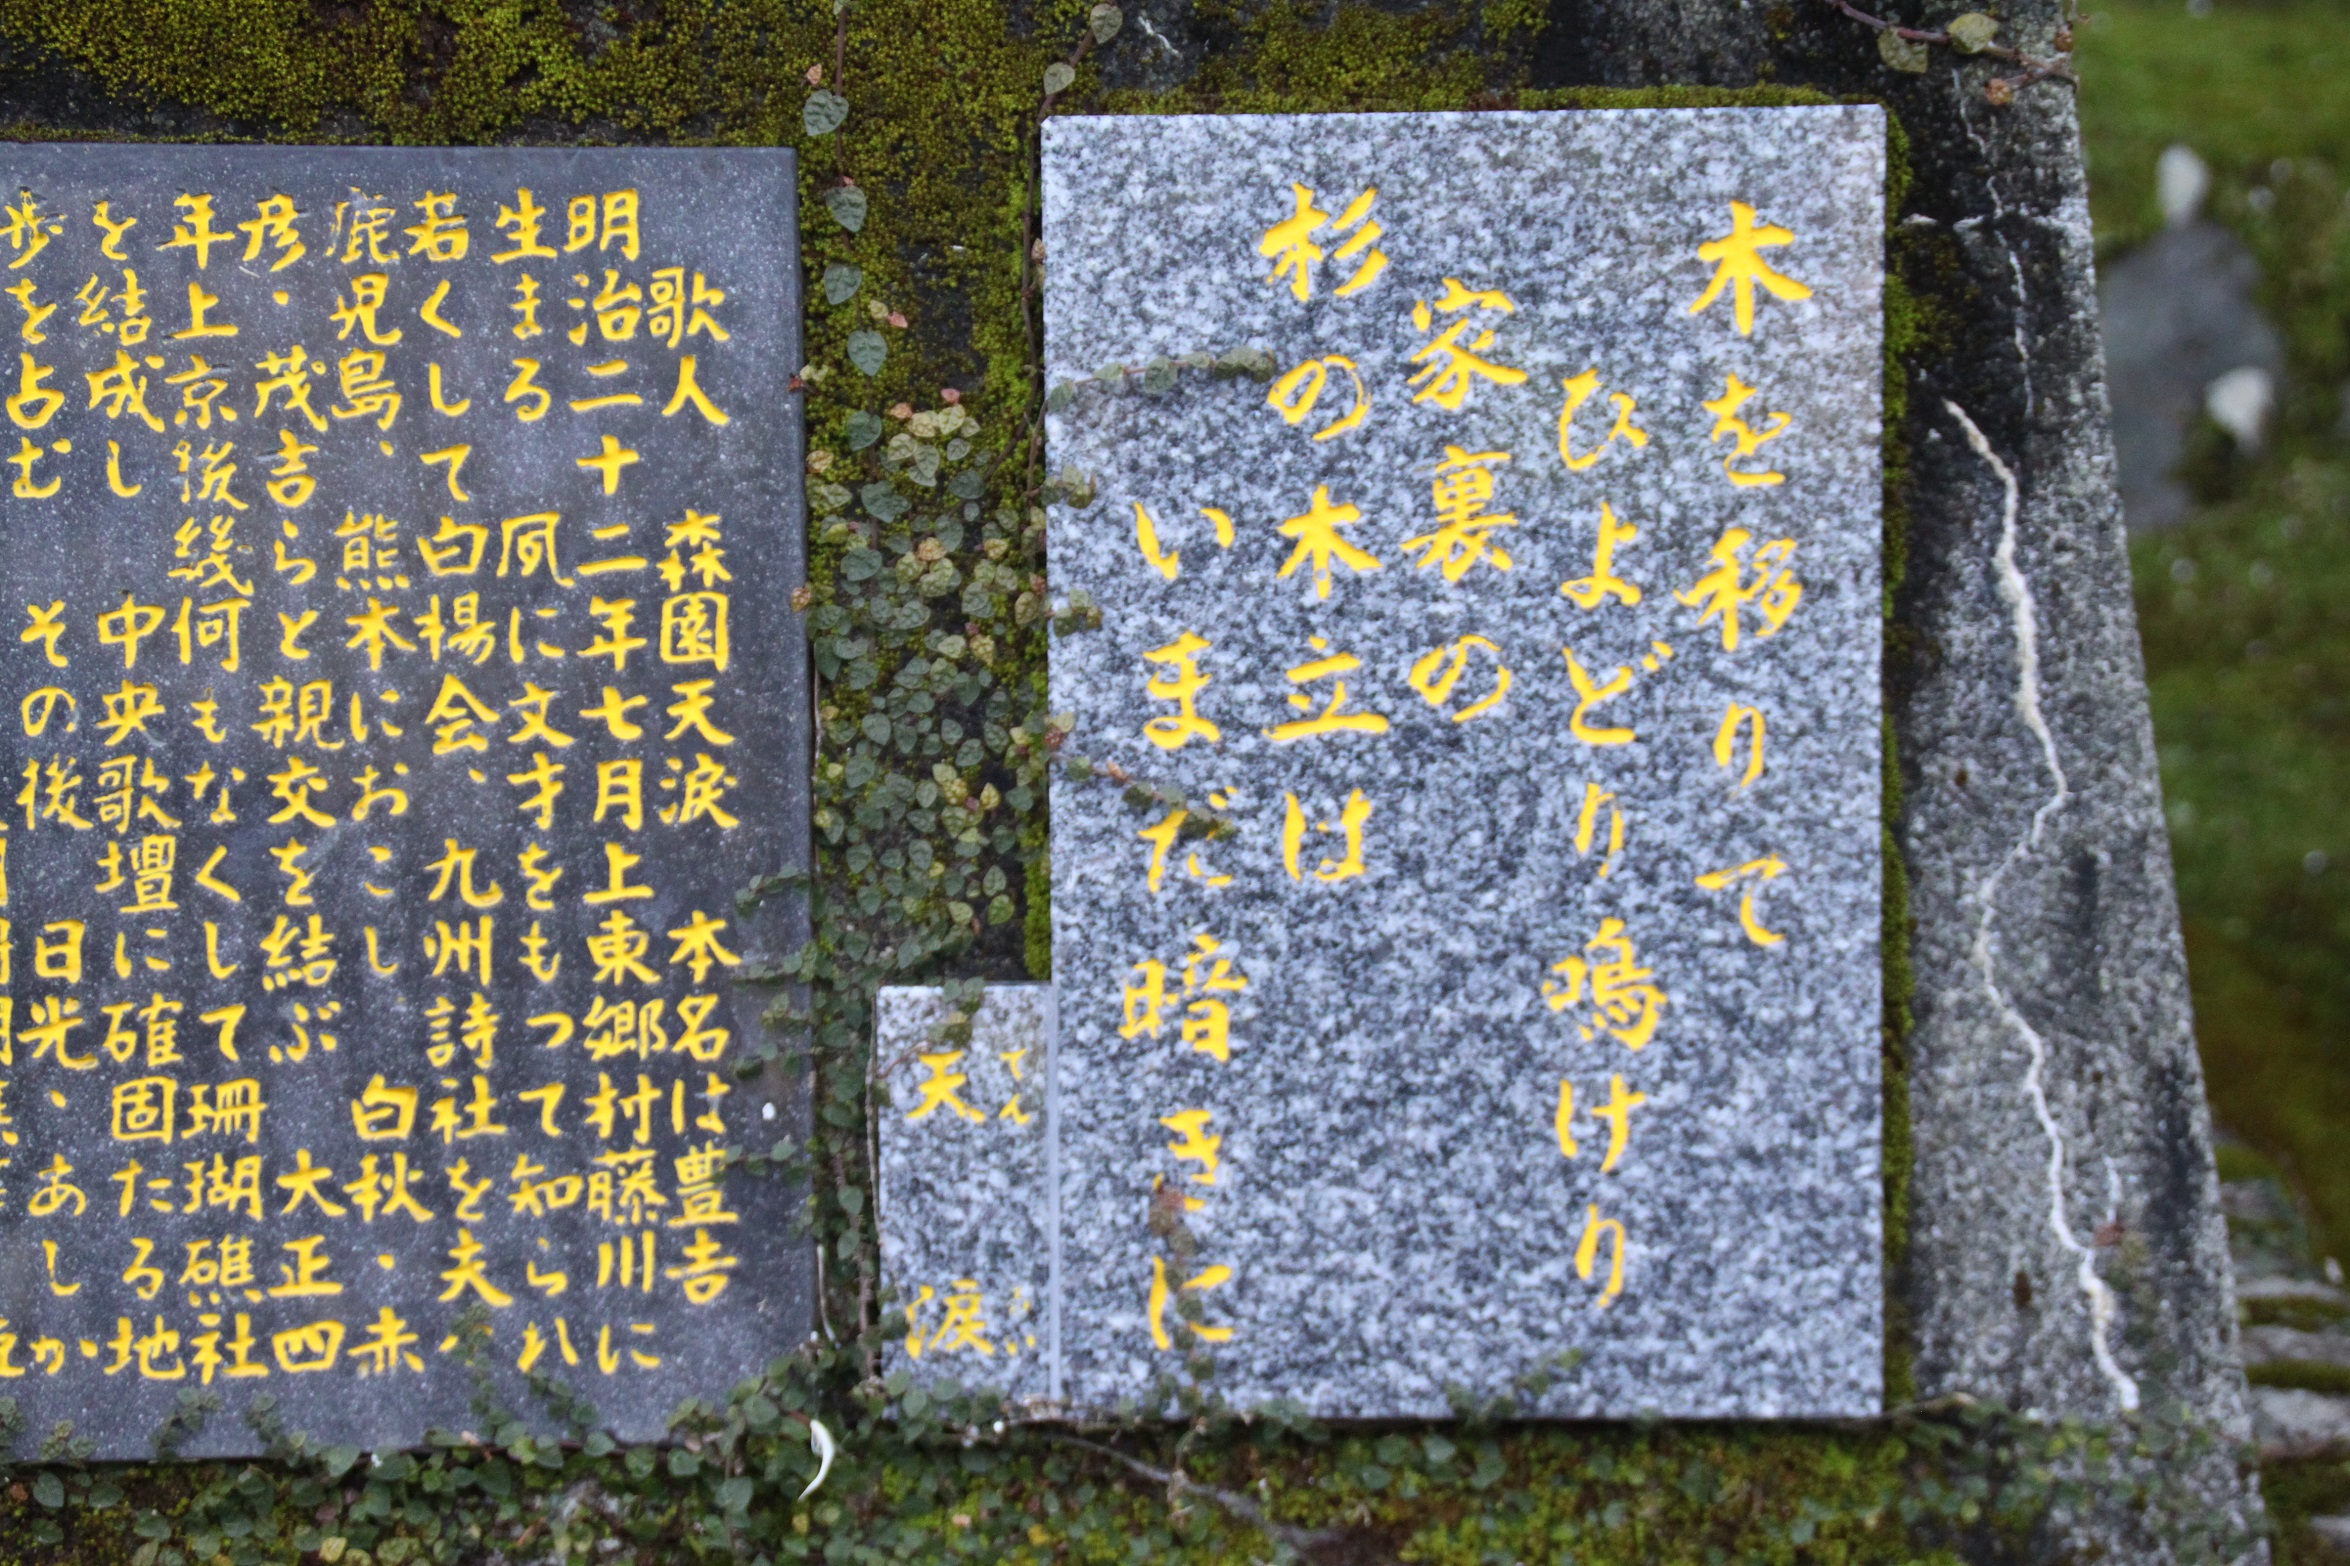 木を移りて
ひよどり鳴けり
家裏の
杉の木立は
いまだ暗きに
天涙
てん
歌人 森園天涙 本名は豊吉
明治二十二年七月上東郷村藤川に
生まる 夙に文才をもって知らハ
若くして白楊会、九州詩社を夫〱
鹿児島、熊本におこし 白秋・赤
彦・茂吉らと親交を結ぶ 大正四
年上京後幾何もなくして珊瑚礁社
を結成し 中央歌壇に確固たる地
歩を占む その後 日光、あしか